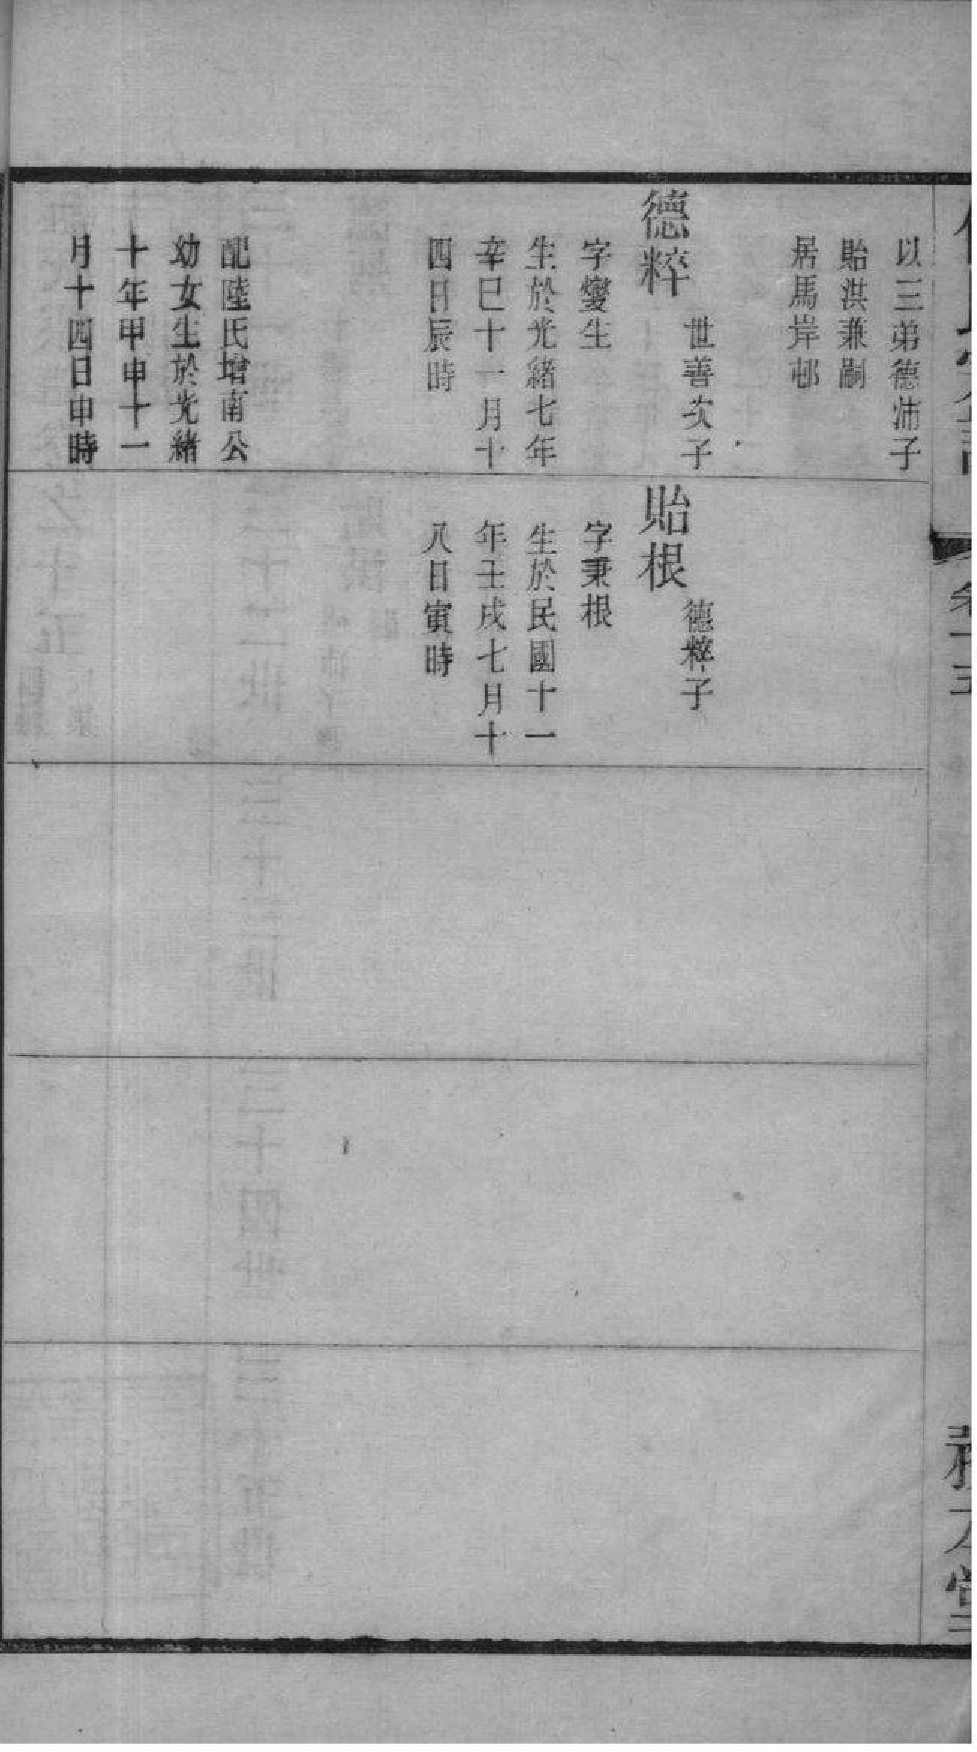 以三弟德沛子
貽洪兼嗣
居馬岸邨
世善次子
德粹
字燮生
生於光緒七年
辛巳十一月十
四日辰時
配陸氏堉南公
幼女生於光緒
十年甲申十一
月十四日申時
德粹子
貽根
字秉根
生於民國十一
年壬戌七月十
八日寅時
卷十五